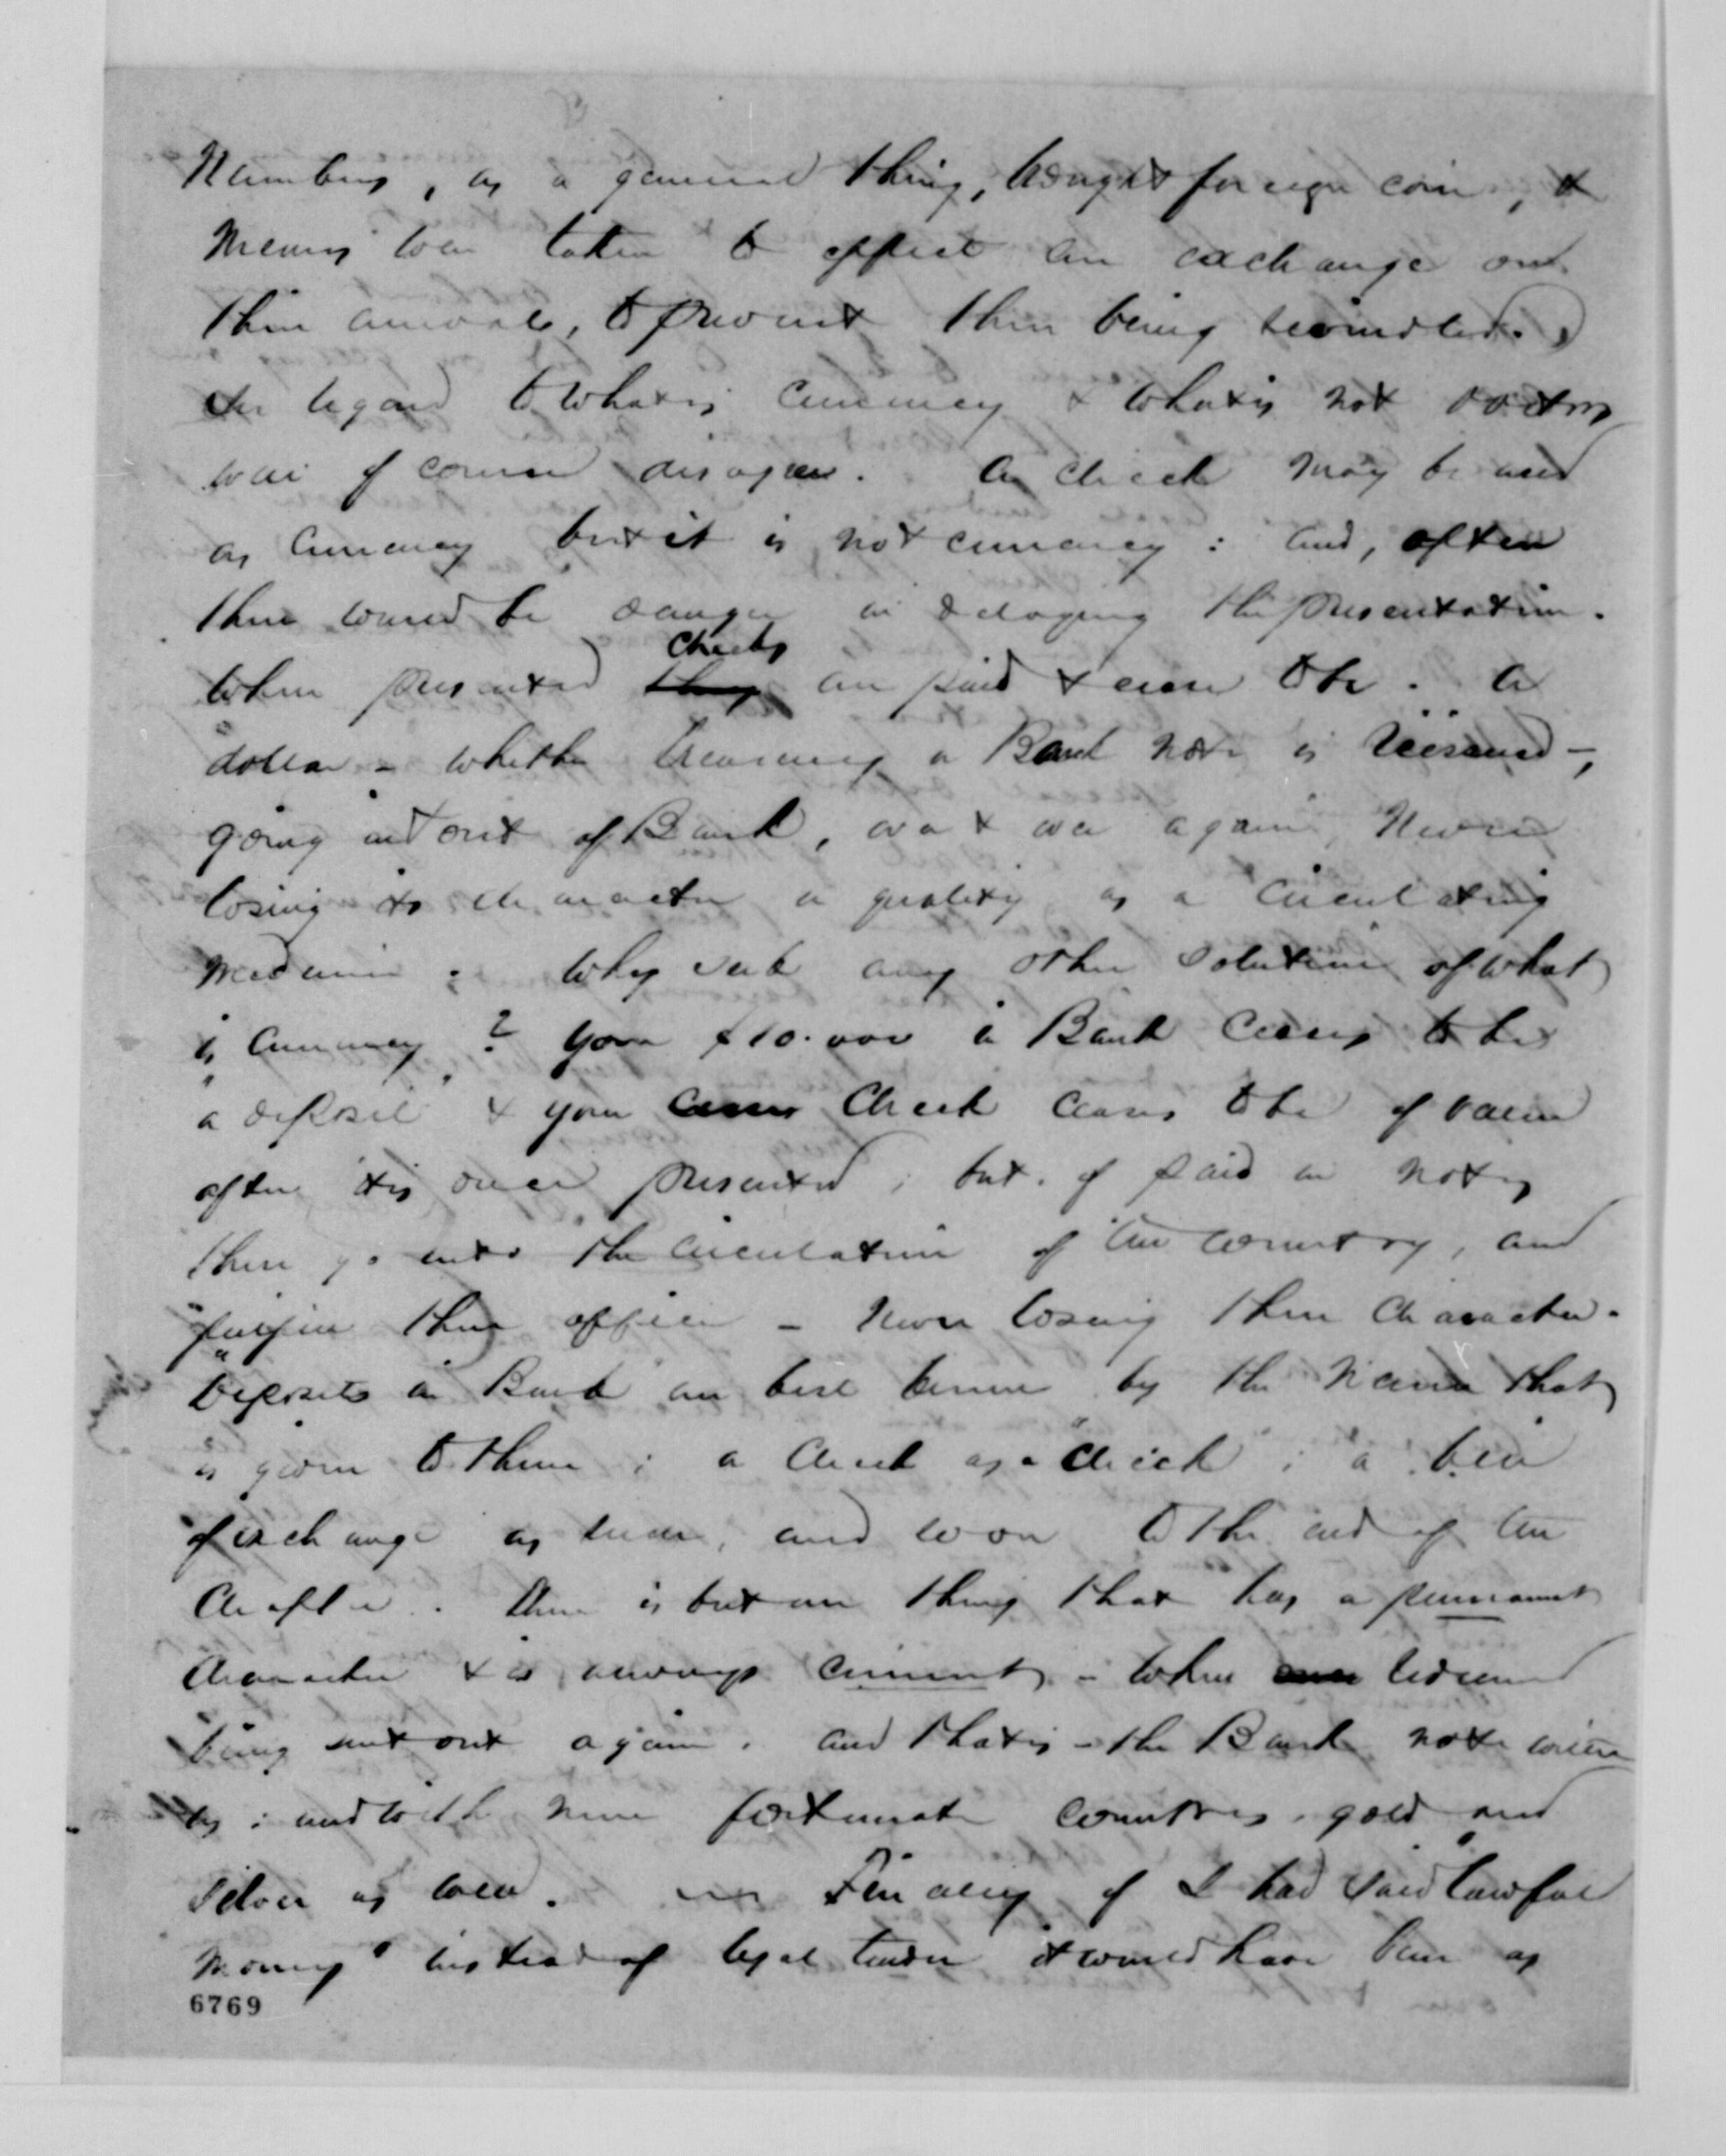 Numbers, as a general thing, bought foreign coin, &
means were taken to effect an exchange on
their arrivals, to prevent their being swindled.)
In regard to what is currency & what is not doctors
will of course disagree. A check may be used
as currency but it is not currency: and, often
there would be danger in delaying the presentation.
When presented they checks are paid & cease to be. A
dollar - whether Treasury or Bank note is reissued -,
going in & out of Bank, over & over again, never
losing its character or quality as a circulating
medium: Why seek any other solution of what
is "currency"? Your $10.000 in Bank ceases to be
a "deposit" & your check ceases to be of value
after its once presented; but if paid in notes
these go into the circulation of the country, and
fulfill their office - never losing their character.
"Deposits in Bank" are best known by the name that
is given to them; a check as a "check"; a bill
of exchange as such, and so on to the end of the
chapter. There is but one thing that has a permanent
character & is always current - when redeemed
being sent out again. and that is - the Bank note with
us: and with more fortunate countries, gold and
silver as well. Finally if I had said "lawful
money" instead of legal tender it would have been as
6769